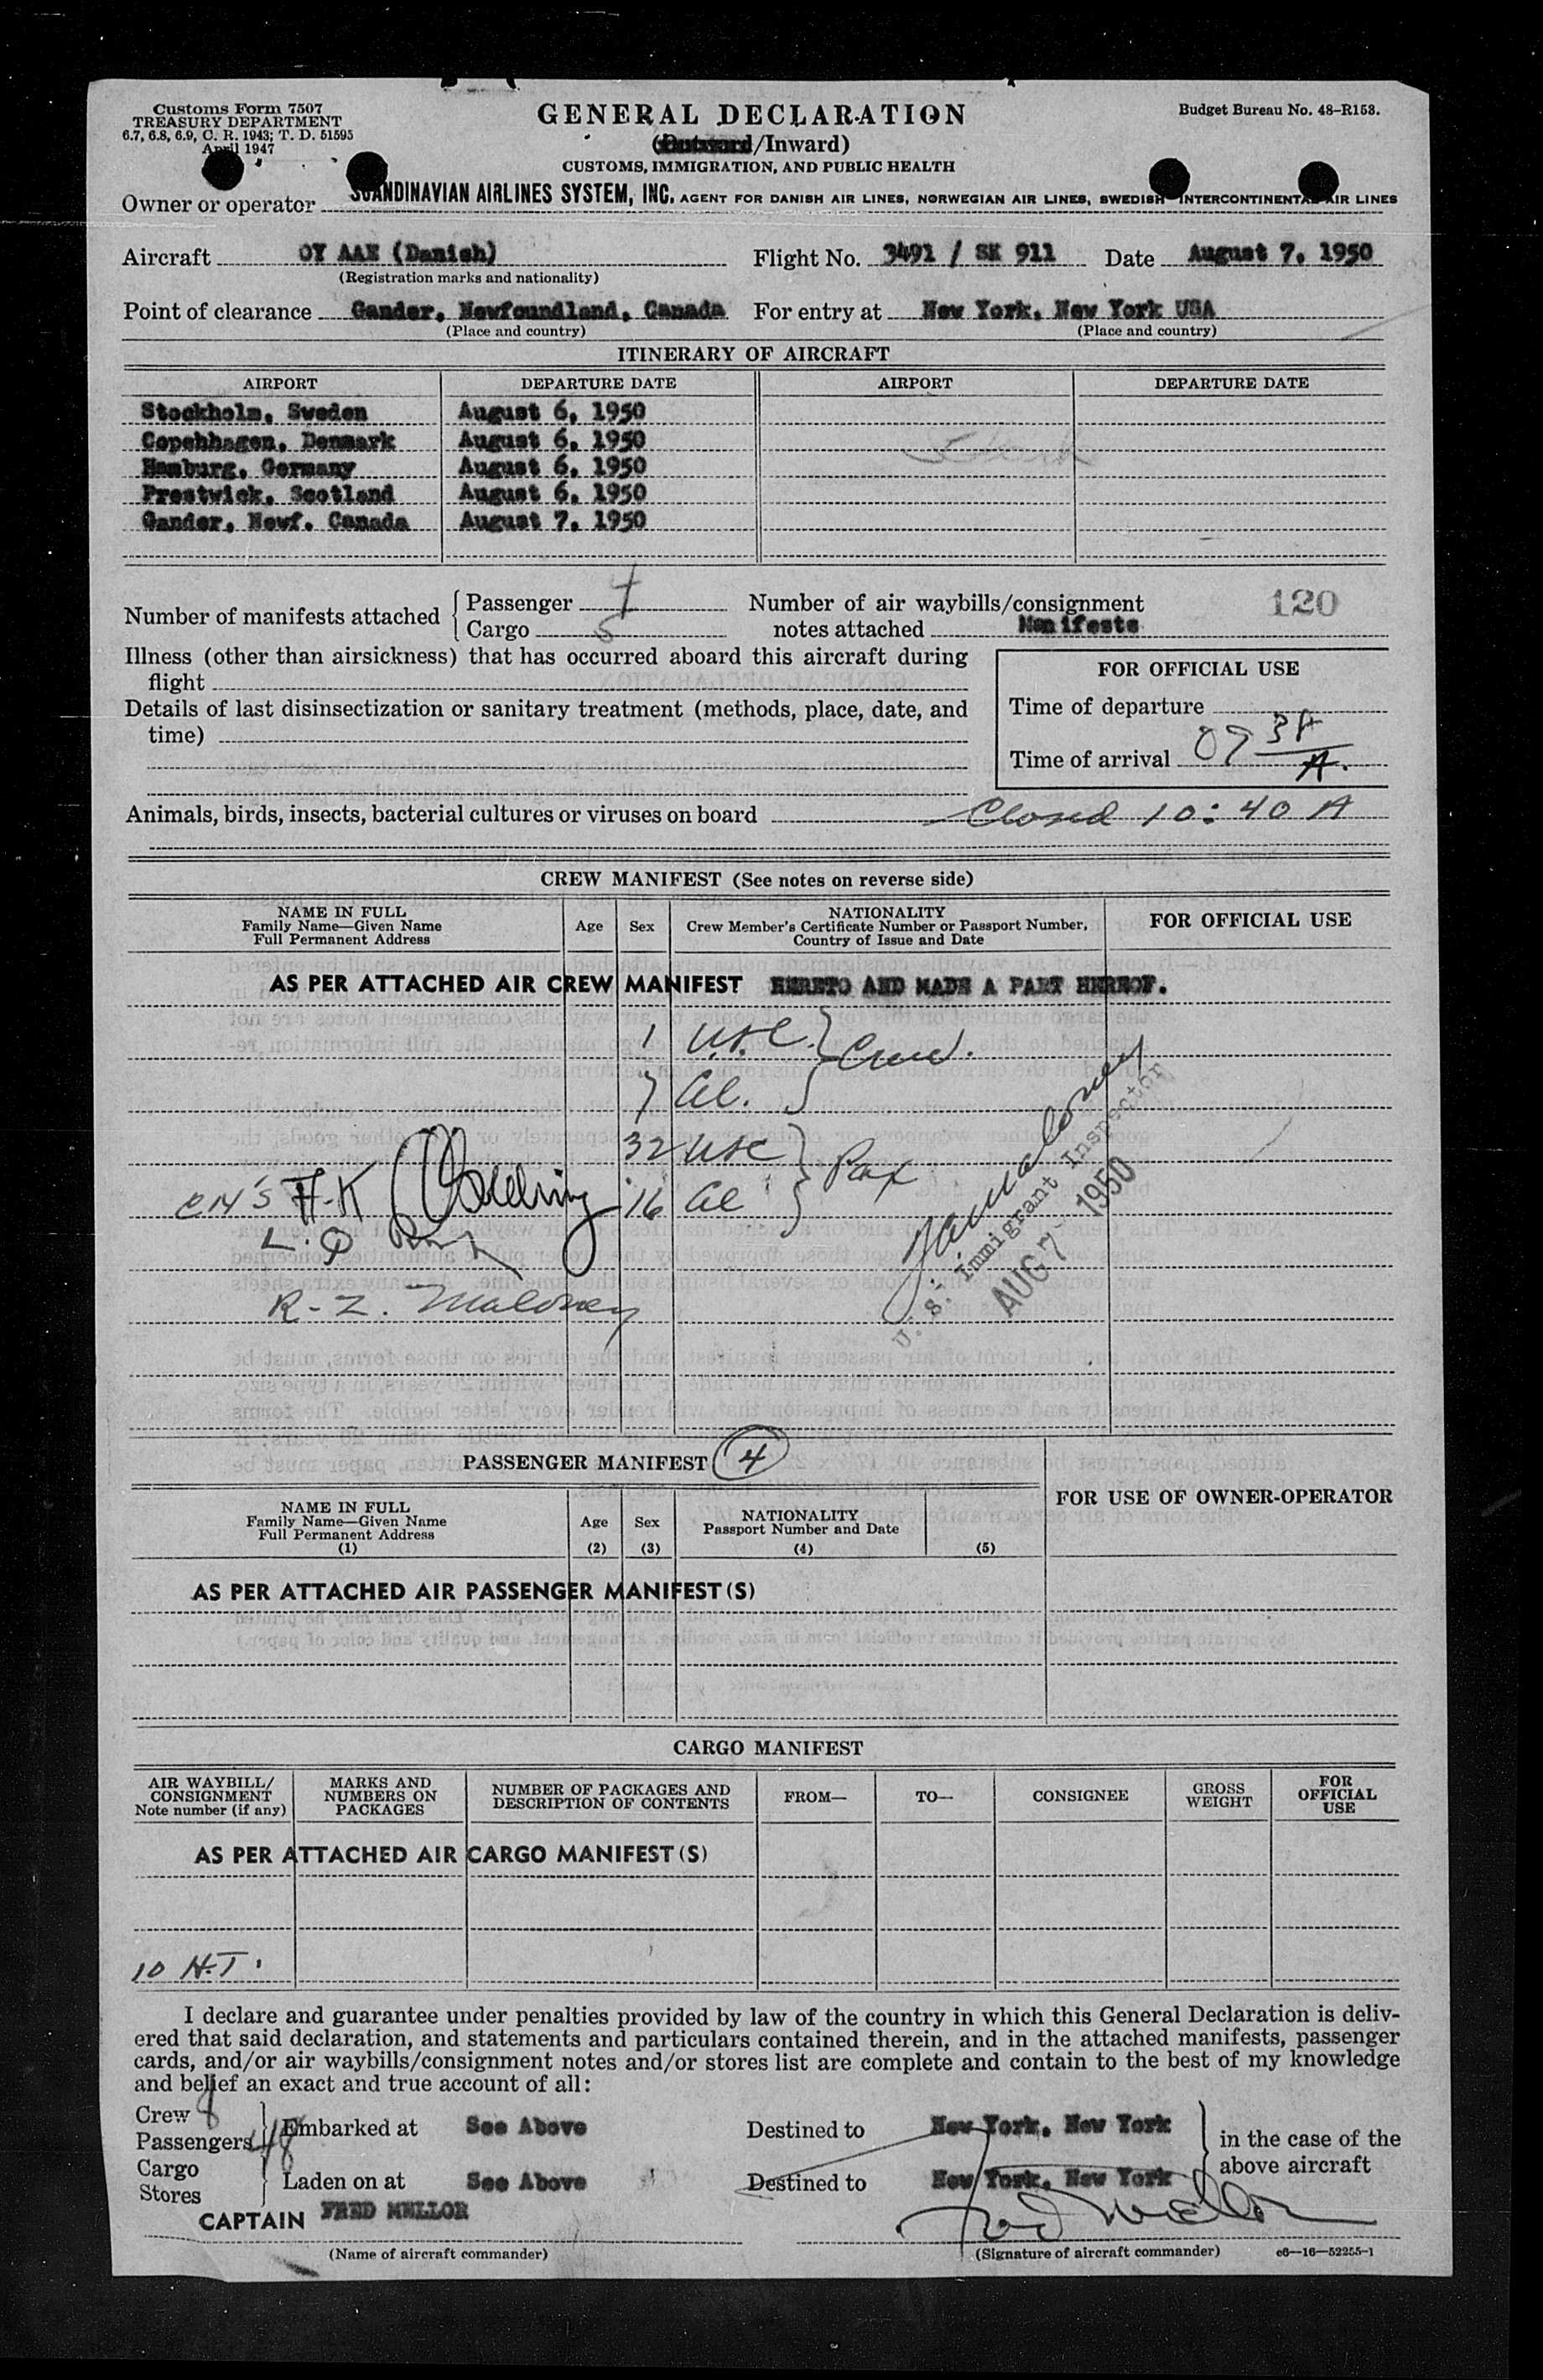 Customs Form 7507
TREASURY DEPARTMENT
6.7, 6.8, 6.9, C. R. 1943; T. D. 51595
April 1947
GENERAL DECLARATION
(Outward/Inward)
CUSTOMS, IMMIGRATION, AND PUBLIC HEALTH
Budget Bureau No. 48-R153.
Owner or operator SCANDINAVIAN AIRLINES SYSTEM, INC. AGENT FOR DANISH AIR LINES, NORWEGIAN AIR LINES, SWEDISH INTERCONTINENTAL AIR LINES
Aircraft OY AAE (Danish) Flight No. 3491 / SK 911 Date August 7, 1950
(Registration marks and nationality)
Point of clearance Gander, Newfoundland, Canada For entry at New York, New York USA
(Place and country) (Place and country)
ITINERARY OF AIRCRAFT
AIRPORT DEPARTURE DATE AIRPORT DEPARTURE DATE
Stockholm, Sweden August 6, 1950
Copehhagen, Denmark August 6, 1950
Hamburg, Germany August 6, 1950
Prestwick, Scotland August 6, 1950
Gander, Newf. Canada August 7, 1950
Number of manifests attached { Passenger 4
Cargo 5
Number of air waybills/consignment
notes attached Manifests
120
Illness (other than airsickness) that has occurred aboard this aircraft during
flight
Details of last disinsectization or sanitary treatment (methods, place, date, and
time)
FOR OFFICIAL USE
Time of departure
Time of arrival 09 38 A.
Animals, birds, insects, bacterial cultures or viruses on board Closed 10:40 A
CREW MANIFEST (See notes on reverse side)
NAME IN FULL
Family Name—Given Name
Full Permanent Address
Age
Sex
NATIONALITY
Crew Member's Certificate Number or Passport Number,
Country of Issue and Date
FOR OFFICIAL USE
AS PER ATTACHED AIR CREW MANIFEST HERETO AND MADE A PART HEREOF.
1 USC } Crew.
7 Al.
32 USC } Pax
16 Al
H-K
R-Z. Maloney
U. S. Immigrant Inspector
AUG 7 1950
PASSENGER MANIFEST 4
NAME IN FULL
Family Name—Given Name
Full Permanent Address
(1)
Age
(2)
Sex
(3)
NATIONALITY
Passport Number and Date
(4)
(5)
FOR USE OF OWNER-OPERATOR
AS PER ATTACHED AIR PASSENGER MANIFEST (S)
CARGO MANIFEST
AIR WAYBILL/
CONSIGNMENT
Note number (if any)
MARKS AND
NUMBERS ON
PACKAGES
NUMBER OF PACKAGES AND
DESCRIPTION OF CONTENTS
FROM—
TO—
CONSIGNEE
GROSS
WEIGHT
FOR
OFFICIAL
USE
AS PER ATTACHED AIR CARGO MANIFEST (S)
10 H.T.
I declare and guarantee under penalties provided by law of the country in which this General Declaration is deliv-
ered that said declaration, and statements and particulars contained therein, and in the attached manifests, passenger
cards, and/or air waybills/consignment notes and/or stores list are complete and contain to the best of my knowledge
and belief an exact and true account of all:
Crew 8
Passengers 48
Embarked at See Above Destined to New York, New York
Cargo
Stores
Laden on at See Above Destined to New York, New York
in the case of the
above aircraft
CAPTAIN FRED MELLOR
Fred Mellor
(Name of aircraft commander) (Signature of aircraft commander) c6—16—52255-1